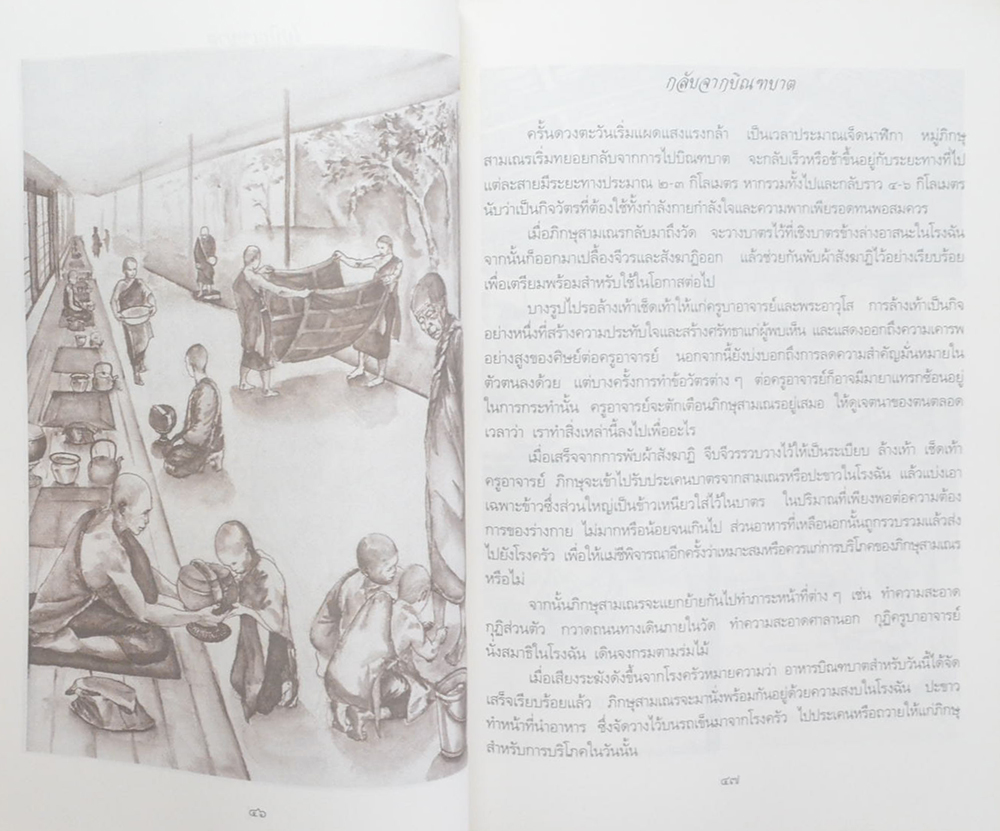 กลับจากบิณฑบาต
ครั้นดวงตะวันเริ่มแผดแสงแรงกล้า เป็นเวลาประมาณเจ็ดนาฬิกา หมู่ภิกษุ
สามเณรเริ่มทยอยกลับจากการไปบิณฑบาต จะกลับเร็วหรือช้าขึ้นอยู่กับระยะทางที่ไป
แต่ละสายมีระยะทางประมาณ ๒-๓ กิโลเมตร หากรวมทั้งไปและกลับราว ๔-๖ กิโลเมตร
นับว่าเป็นกิจวัตรที่ต้องใช้ทั้งกำลังกายกำลังใจและความพากเพียรอดทนพอสมควร
เมื่อภิกษุสามเณรกลับมาถึงวัด จะวางบาตรไว้ที่เชิงบาตรข้างล่างอาสนะในโรงฉัน
จากนั้นก็ออกมาเปลื้องจีวรและสังฆาฏิออก แล้วช่วยกันพับผ้าสังฆาฏิไว้อย่างเรียบร้อย
เพื่อเตรียมพร้อมสำหรับใช้ในโอกาสต่อไป
บางรูปไปรอล้างเท้าเช็ดเท้าให้แก่ครูบาอาจารย์และพระอาวุโส การล้างเท้าเป็นกิจ
อย่างหนึ่งที่สร้างความประทับใจและสร้างศรัทธาแก่ผู้พบเห็น และแสดงออกถึงความเคารพ
อย่างสูงของศิษย์ต่อครูอาจารย์ นอกจากนี้ยังบ่งบอกถึงการลดความสำคัญมั่นหมายใน
ตัวตนลงด้วย แต่บางครั้งการทำข้อวัตรต่าง ๆ ต่อครูอาจารย์ก็อาจมีมายาแทรกซ้อนอยู่
ในการกระทำนั้น ครูอาจารย์จะตักเตือนภิกษุสามเณรอยู่เสมอ ให้ดูเจตนาของตนตลอด
เวลาว่า เราทำสิ่งเหล่านี้ลงไปเพื่ออะไร
เมื่อเสร็จจากการพับผ้าสังฆาฏิ จีบจีวรรวบวางไว้ให้เป็นระเบียบ ล้างเท้า เช็ดเท้า
ครูอาจารย์ ภิกษุจะเข้าไปรับประเคนบาตรจากสามเณรหรือปะขาวในโรงฉัน แล้วแบ่งเอา
เฉพาะข้าวซึ่งส่วนใหญ่เป็นข้าวเหนียวใส่ไว้ในบาตร ในปริมาณที่เพียงพอต่อความต้อง
การของร่างกาย ไม่มากหรือน้อยจนเกินไป ส่วนอาหารที่เหลือนอกนั้นถูกรวบรวมแล้วส่ง
ไปยังโรงครัว เพื่อให้แม่ชีพิจารณาอีกครั้งว่าเหมาะสมหรือควรแก่การบริโภคของภิกษุสามเณร
หรือไม่
จากนั้นภิกษุสามเณรจะแยกย้ายกันไปทำภาระหน้าที่ต่าง ๆ เช่น ทำความสะอาด
กุฏิส่วนตัว กวาดถนนทางเดินภายในวัด ทำความสะอาดศาลานอก กุฏิครูบาอาจารย์
นั่งสมาธิในโรงฉัน เดินจงกรมตามร่มไม้
เมื่อเสียงระฆังดังขึ้นจากโรงครัวหมายความว่า อาหารบิณฑบาตสำหรับวันนี้ได้จัด
เสร็จเรียบร้อยแล้ว ภิกษุสามเณรจะมานั่งพร้อมกันอยู่ด้วยความสงบในโรงฉัน ปะขาว
ทำหน้าที่นำอาหาร ซึ่งจัดวางไว้บนรถเข็นมาจากโรงครัว ไปประเคนหรือถวายให้แก่ภิกษุ
สำหรับการบริโภคในวันนั้น
๔๖
๔๗